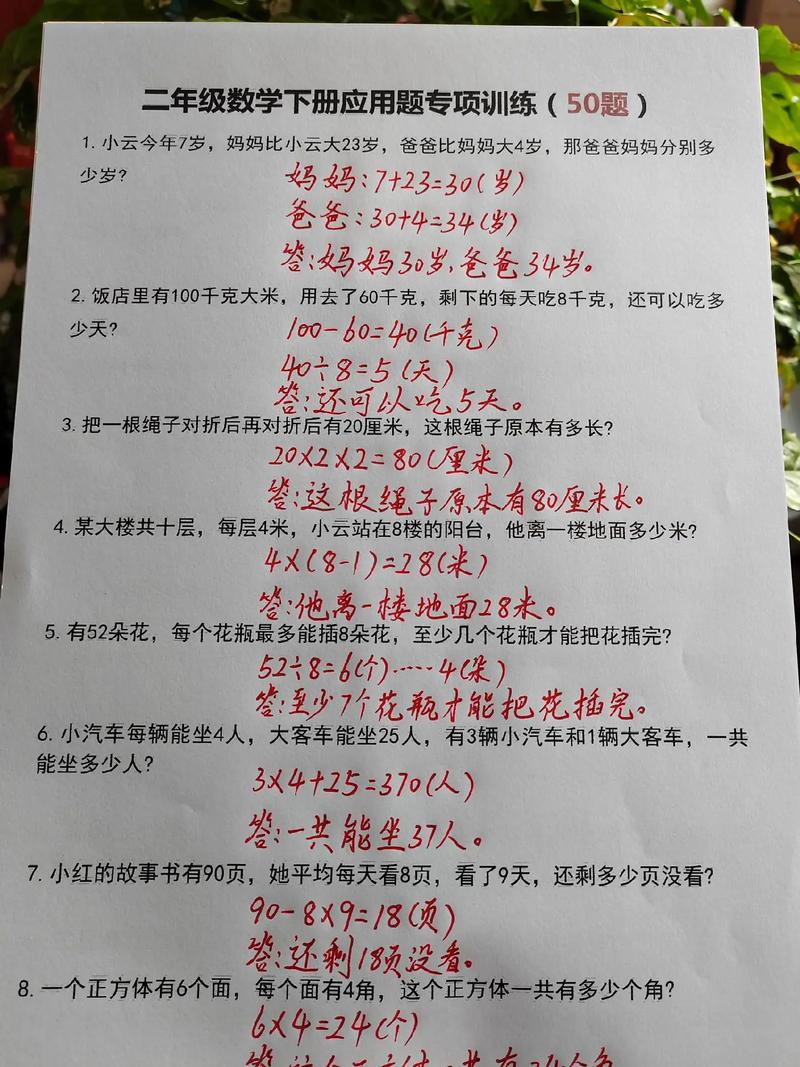 二年级数学下册应用题专项训练（50题）
1. 小云今年7岁，妈妈比小云大23岁，爸爸比妈妈大4岁，那爸爸妈妈分别多
少岁?
妈妈:7+23=30(岁)
爸爸:30+4=34(岁)
答:妈妈30岁,爸爸34岁。
2. 饭店里有100千克大米，用去了60千克，剩下的每天吃8千克，还可以吃多
少天?
100-60=40(千克)
40÷8=5(天)
答:还可以吃5天。
3. 把一根绳子对折后再对折后有20厘米，这根绳子原本有多长?
20×2×2=80(厘米)
答:这根绳子原本有80厘米长。
4. 某大楼共十层，每层4米，小云站在8楼的阳台，他离一楼地面多少米?
4×(8-1)=28(米)
答:他离一楼地面28米。
5. 有52朵花，每个花瓶最多能插8朵花，至少几个花瓶才能把花插完?
52÷8=6(个)……4(朵)
答:至少7个花瓶才能把花插完。
6. 小汽车每辆能坐4人，大客车能坐25人，有3辆小汽车和1辆大客车，一共
能坐多少人?
3×4+25=370(人)
答:一共能坐37人。
7. 小红的故事书有90页，她平均每天看8页，看了9天，还剩多少页没看?
90-8×9=18(页)
答:还剩18页没看。
8. 一个正方体有6个面，每个面有4角，这个正方体一共有多少个角?
6×4=24(个)